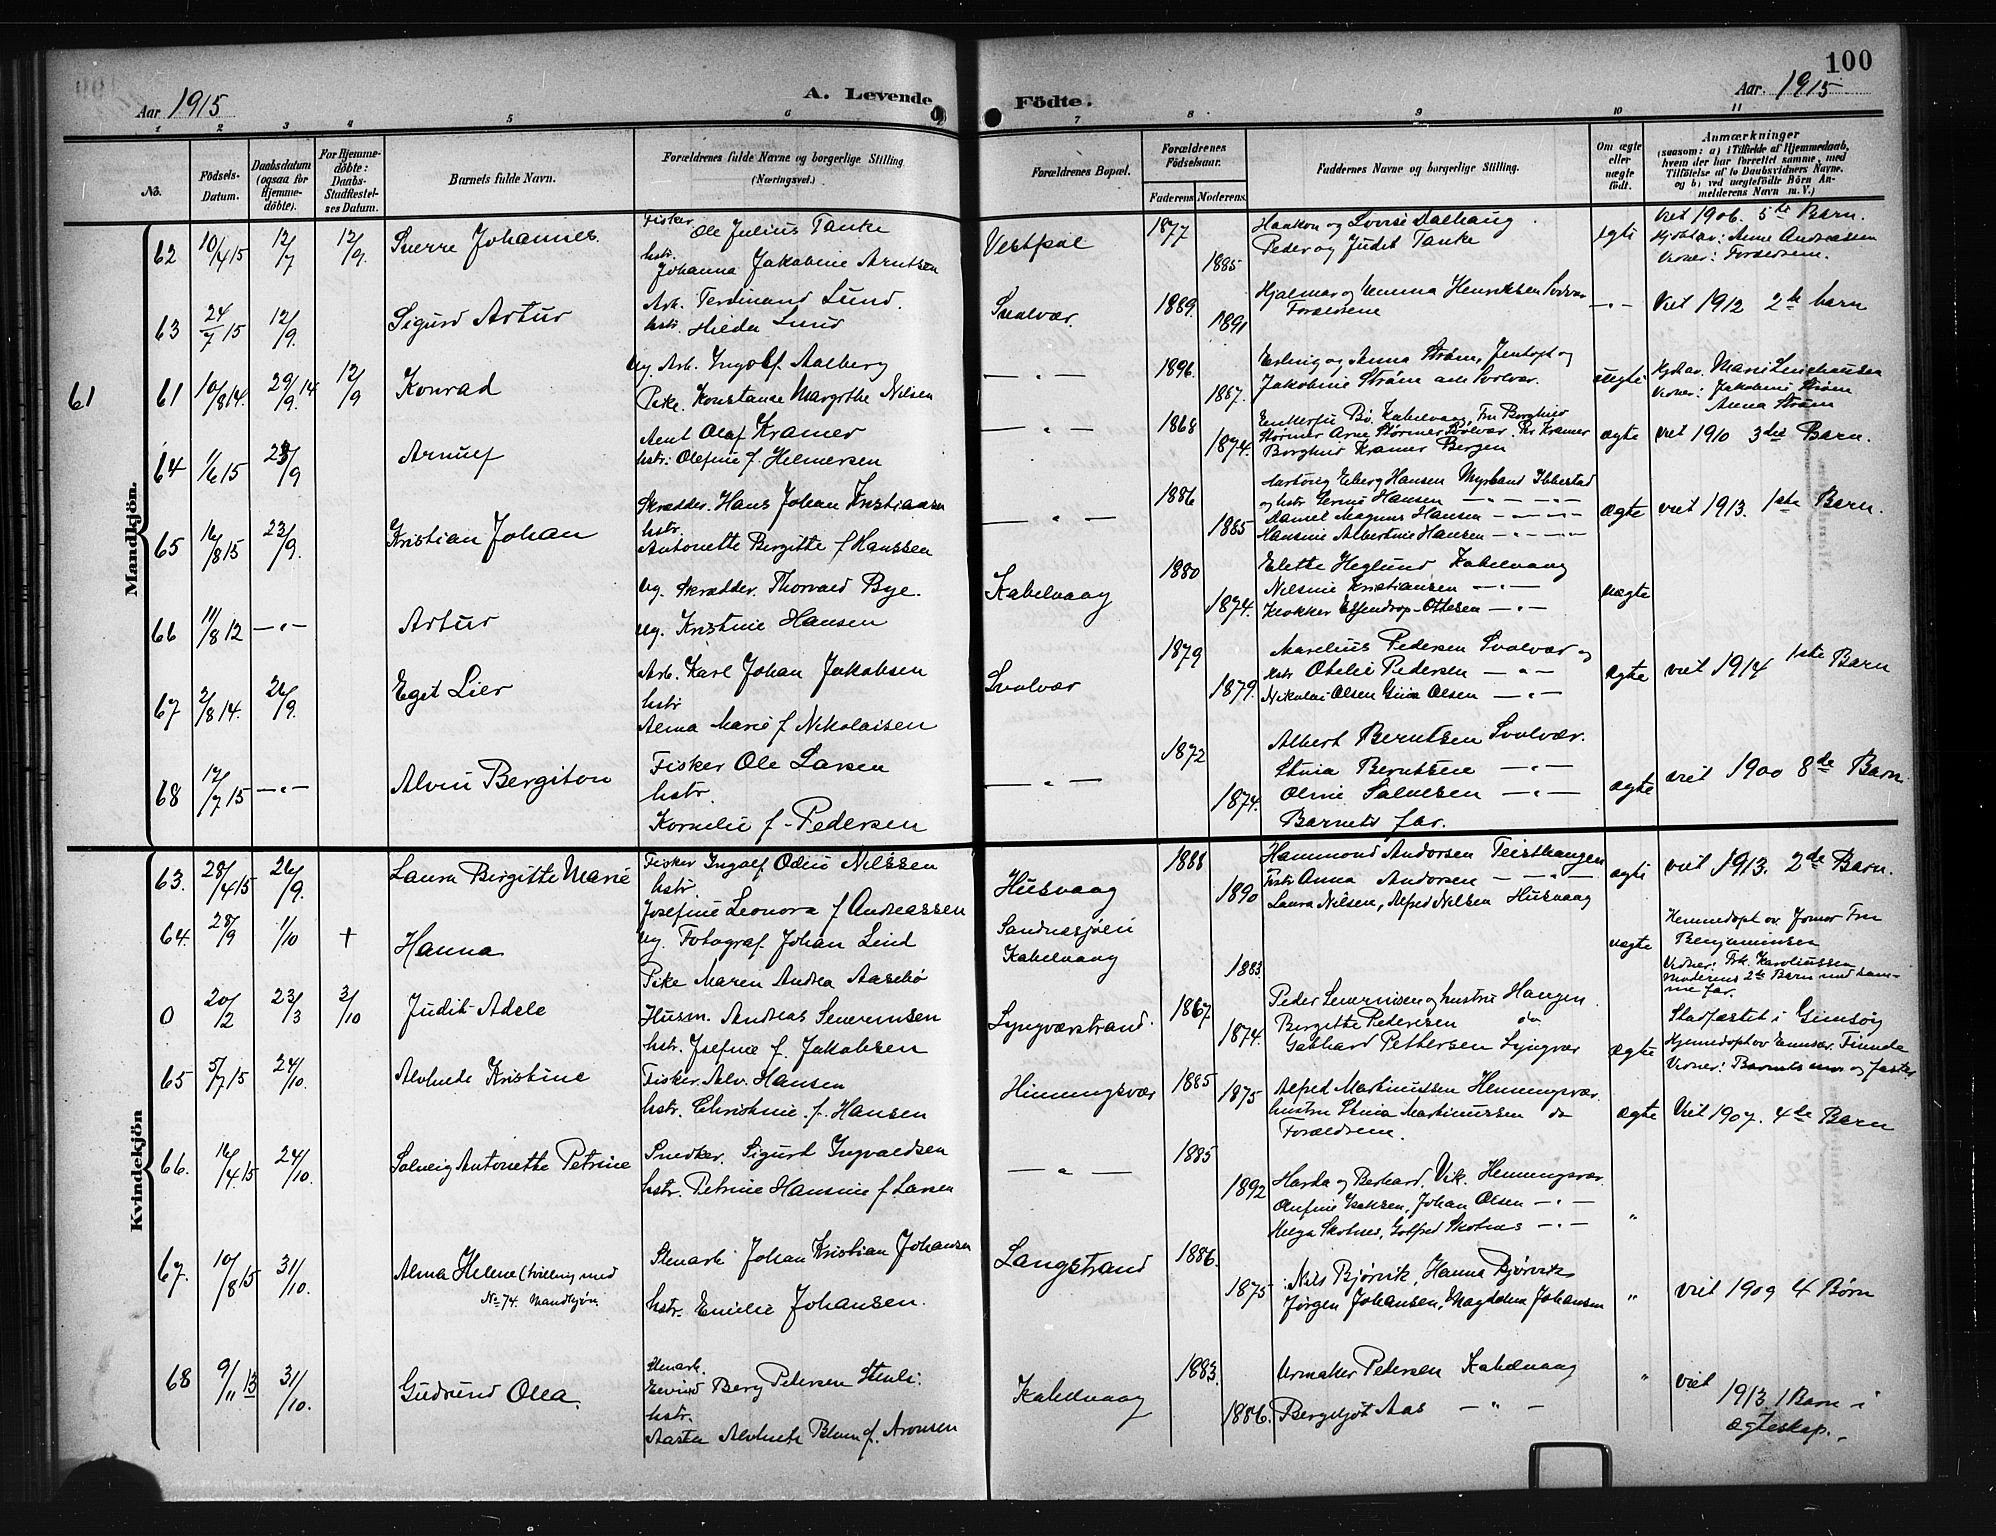 100
Aar 1915
A. Levende
Födte.
Aar 1915
1 2 3 4 5 6 7 8 9 10 11
No.
Födsels-Datum.
Daabsdatum (ogsaa for Hjemme-döbte).
For Hjemme-döbte: Daabs-Stadfæstel-ses Datum.
Barnets fulde Navn.
Forældrenes fulde Navne og borgerlige Stilling.
(Næringsvei.)
Forældrenes Bopæl.
Forældrenes Födselsaar.
Faderens Moderens.
Faddernes Navne og borgerlige Stilling.
Om ægte eller uægte födt.
Anmærkninger
(saasom: a) i Tilfælde af Hjemmedaab, hvem der har forrettet samme, med Tilföielse af to Daabsvidners Navne. og b) ved uægtefödte Börn Anmelderens Navn m. V.)
Mandkjön.
62 10/4 15 12/7 12/9 Sverre Johannes.
Fisker Ole Julius Tanke
hstr. Johanna Jakobine Arntsen
Vestpol 1877 1885
Haakon og Lovise Dalhaug
Peder og Judit Tanke
egte
viet 1906. 5te Barn.
Hjdøbt av: Anne Andreassen
Vidner: Forældrene.
63 24/7 15 12/9. Sigurd Artur
Arb. Ferdinand Lund.
hstr. Hilda Lund
Svolvær. 1889. 1891
Hjalmar og Emma Henriksen Svolvær
Forældrene
— " —
Viet 1912 2de barn
61
61 10/8 14. 29/9. 14 12/9 Konrad
Ug. Arb. Ingolf. Aalberg
Pike. Konstanse Margrethe Nilsen
— " — 1896. 1887.
Erling og Anna Strøm, Jentoft og
Jakobine Strøm alle Svolvær.
uegte
Vidner: Jakobine Strøm
Anna Strøm
64 1/6 15 23/9 Arnulf
Agent Olaf Kramer
hstr: Olefine f. Helmersen
— " — 1868 1874.
Enkefru Bø. Kabelvaag, Fru Borghild
Størmer Arne Størmer Svolvær. Kramer
Borghild Kramer Bergen
ægte
viet 1910 3die Barn.
65 16/8 15 23/9. Kristian Johan
Skrædder. Hans Johan Kristiansen
hstr. Antonette Bergitte f Hanssen
— " — 1886 1885
Hansen Myrland Ibbestad
og hstr Hansen — " —
Daniel Magnus Hansen — " —
Hansine Albertine Hansen — " —
Ægte
viet 1913. 1ste Barn.
66 11/8 12 — " — Artur
Ug. Skrædder. Thorvald Bye.
Ug. Kristine Hansen
Kabelvaag 1880 1874.
Elette Heglund Kabelvaag
Nilsine Kristiansen — " —
Klokker Effendrop-Ottesen — " —
uægte
67 2/8 14. 26/9. Egil Lier
Arb. Karl Johan Jakobsen
hstr
Alma Marie f Nikolaisen
Svolvær 1879 1879.
Marelius Pedersen Svolvær og
hstr Otelie Pedersen — " —
Nikolai Olsen Gina Olsen — " —
Ægte
viet 1914 1ste Barn
68 17/7 15 — " — Alvin Bergiton
Fisker Ole Larsen
hstr.
Kornelie f. Pedersen
— " — 1872 1874.
Albert Berntsen Svolvær.
Stina Berntsen — " —
Oline Salvesen — " —
Barnets far.
ægte
viet 1900 8de Barn
Kvindekjön
63. 28/4 15 26/9. Laura Birgitte Marie
Fisker Ingolf Odin Nilssen
hstr.
Josefine Leonora f Andreassen
Husvaag 1888 1890
Hammond Andorsen Teisthaugen
Anna Andorsen — " —
Laura Nilsen, Alfred Nilsen Husvaag
ægte
viet 1913. 2de Barn.
64. 28/9 1/10 + Hanna
Ug. Fotograf. Johan Lind
Pike Maren Andrea Aasebø
Sandnessjøen
Kabelvaag 1883
uægte
Hjemmedøpt av Jomor Fru
Benjaminsen
Vidner: Frk. Karoliussen
Moderens 2de Barn med sam-
me far.
0 20/2 23/3 3/10 Judit Adele
Husm. Andreas Severinsen
hstr. Josefine f. Jakobsen
Lyngværstrand. 1867 1874.
Peder Severinsen og hustru Haugen.
Bergitte Pedersen do
Gabhard Pettersen Lyngvær
ægte
Stadfæstet i Gimsøy
Vidner: Barnets mor og faster
65 5/7 15 24/10. Alvhilde Kristine
Fisker. Alv. Hansen
hstr. Christine. f. Hansen
Henningsvær 1885 1875
Alfred Martinussen Henningsvær.
hustru Stina Martinussen do
Forældrene.
ægte
Viet 1907. 4de Barn
66. 16/4. 15 24/10. Solveig Antonette Petrine
Snedker. Sigurd Ingvaldsen
hstr. Petrine Hansine f Larsen
— " — 1885 1892
Harda og Berhard. Vik. Henningsvær.
Isaksen, Johan Olsen — " —
Helga Skotnes, Gotfred Skotnes — " —
"
67. 10/8 15 31/10. Alma Helene (tvilling med
No 74. Mandkjøn.
Stenarb. Johan Kristian Johansen
hstr. Emilie Johansen.
Langstrand 1886. 1875
Nils Bjørvik, Hanna Bjørvik,
Jørgen Johansen, Magdalena Johansen
"
viet 1909 4 Børn
68 9/11 13 31/10. Gudrund Olea.
Stenarb.
Eivind Berg Pedersen
hstr.
Aasta Alvhilde Blom f. Aronsen
Kabelvaag 1883. 1886.
Urmaker Pedersen Kabelvaag
Bergljot Aas — " —
"
viet 1913 1 Barn i
ægteskap.